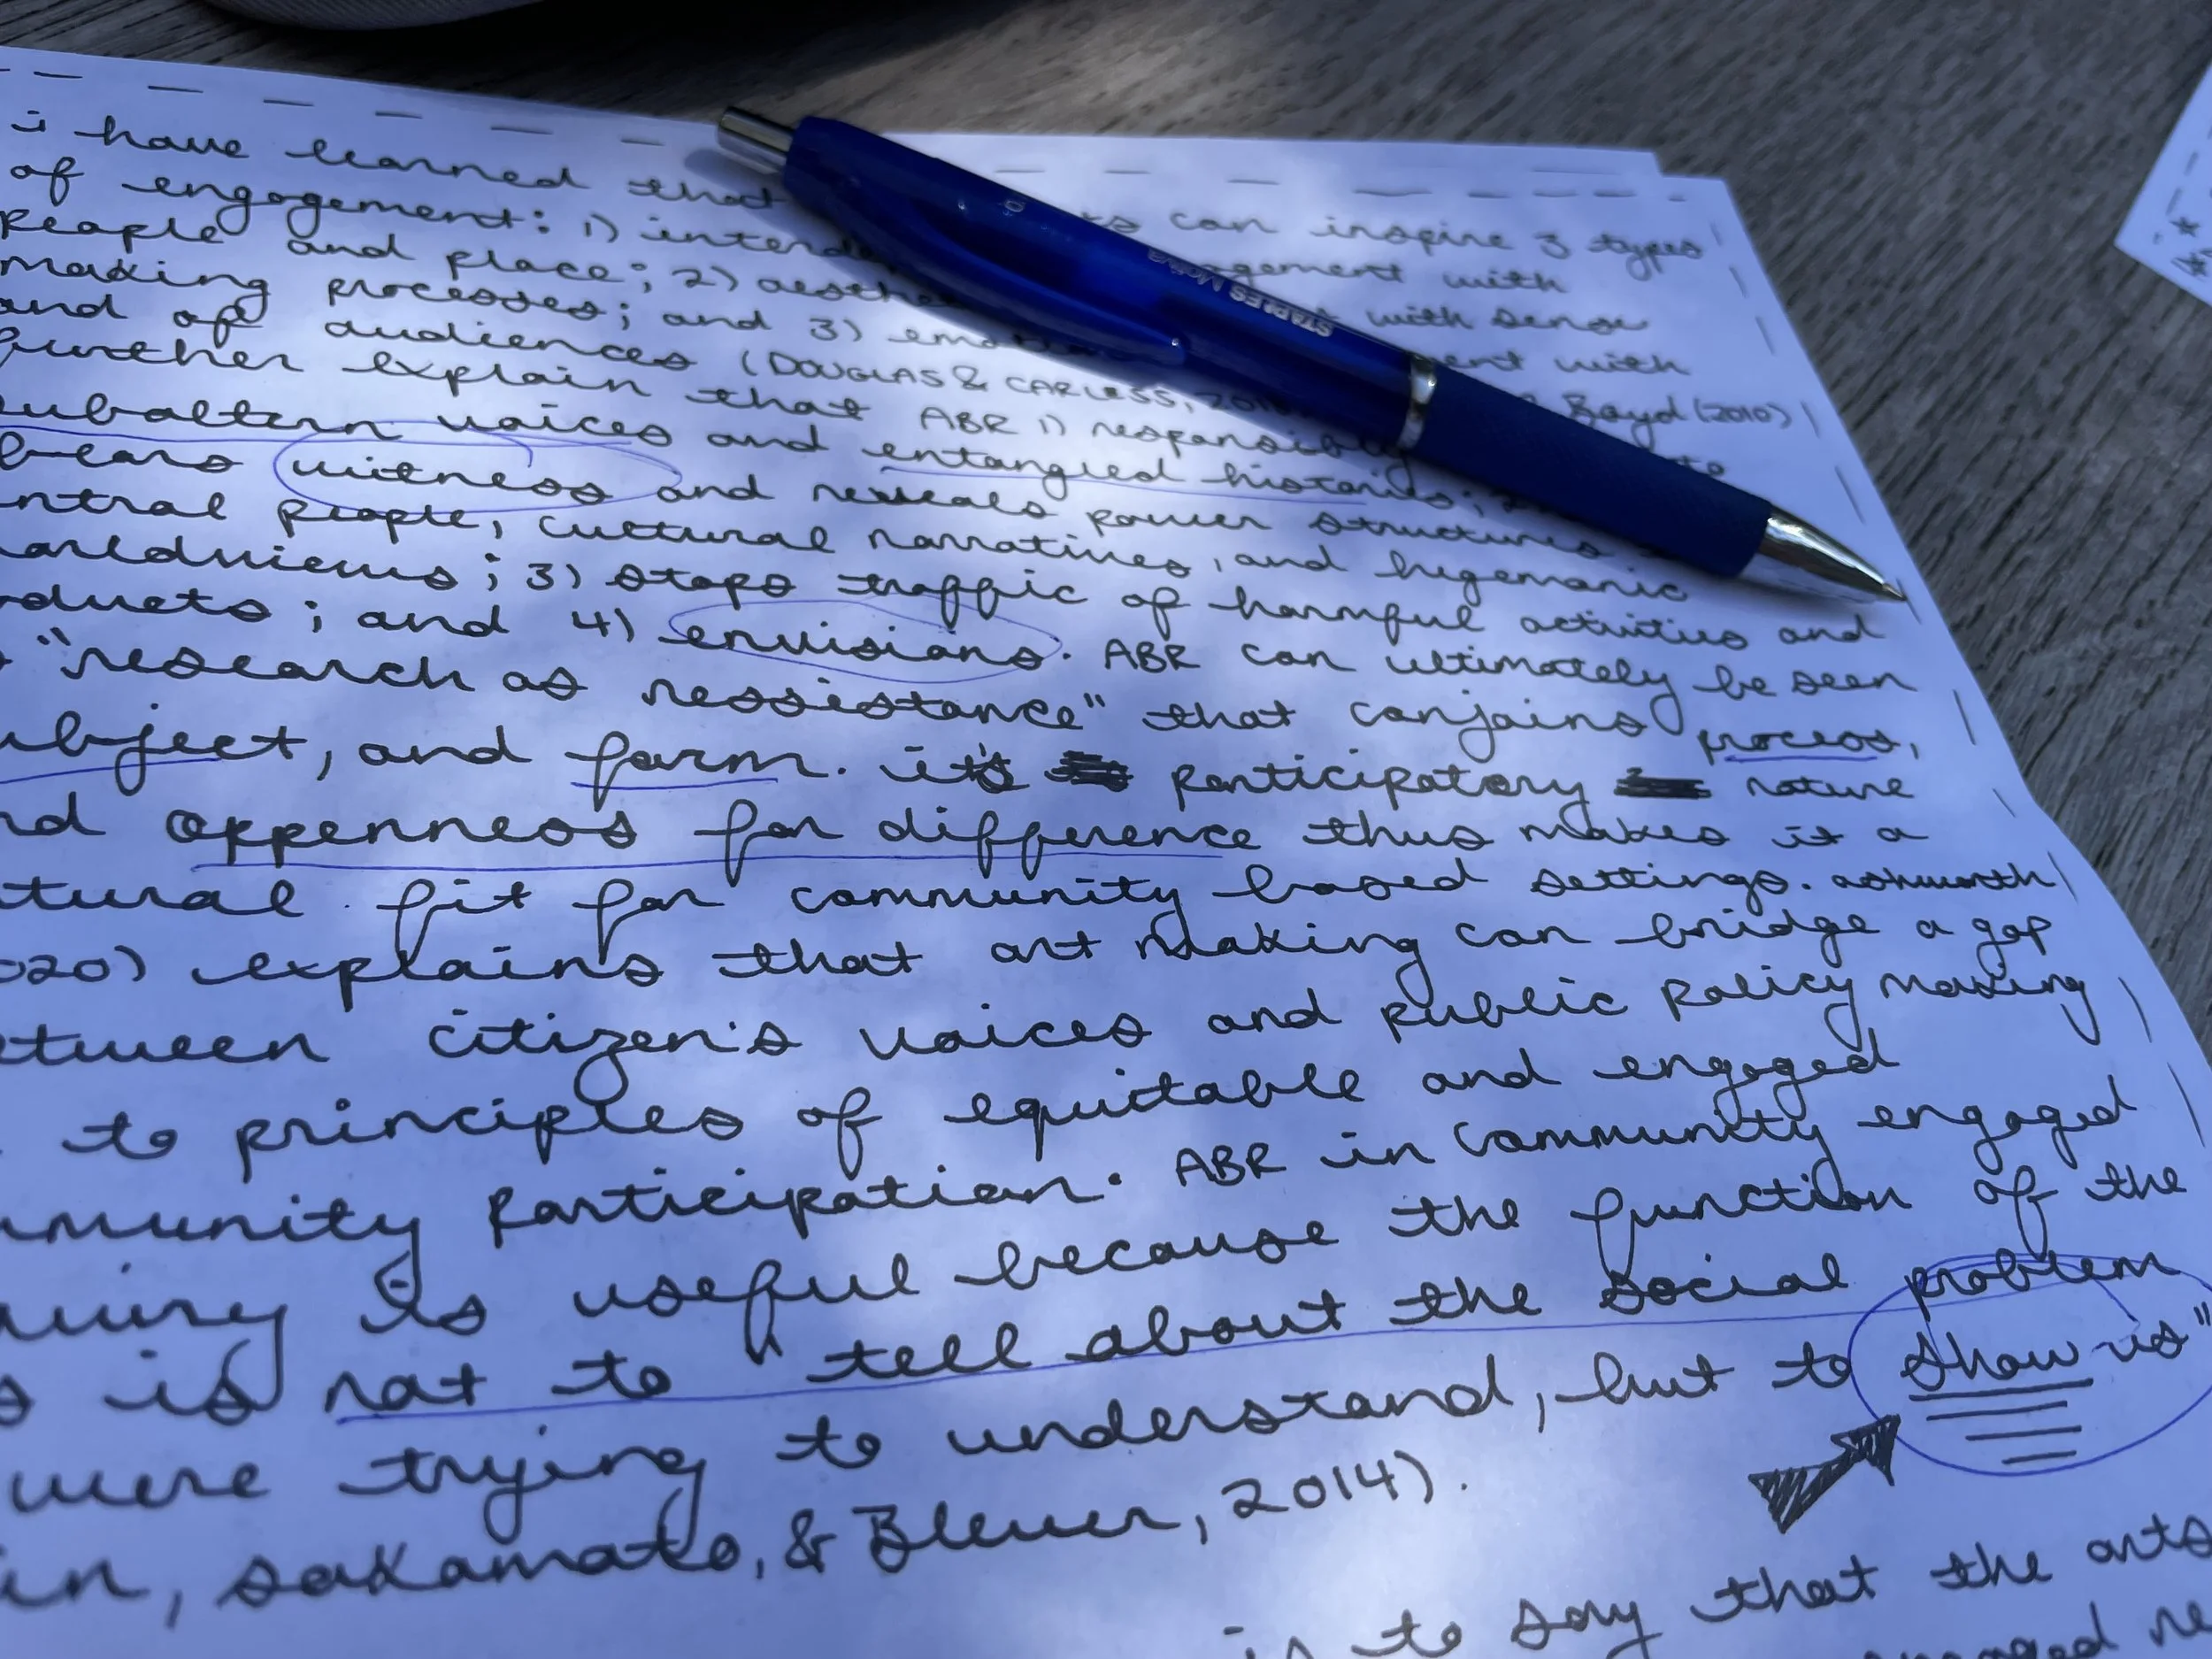 i have learned that ts can inspire 3 types
of engagement: 1) interd gement with
people and place; 2) aesthe with sense
making processes; and 3) emo ent with
and of audiences (DOUGLAS & CARLESS, 201 Boyd (2010)
further explain that ABR 1) responsib to
ubaltern voices and entangled histories;
bears witness and reveals power structures
ntral people, cultural narratives, and hegemonic
orldviews; 3) stops traffic of harmful activities and
oducts; and 4) envisions. ABR can ultimately be seen
"research as ressistance" that conjoins process,
ubject, and form. it's participatory nature
nd oppenness for difference thus makes it a
tural fit for community based settings. ashworth
020) explains that art making can bridge a gap
etween citizen's voices and public policy making
to principles of equitable and engaged
mmunity participation. ABR in community engaged
quiry is useful because the function of the
s is not to "tell about the social problem
were trying to understand, but to show us"
in, sakamoto, & Bleuer, 2014).
is to say that the arts
engaged re
STAPLES Motiva